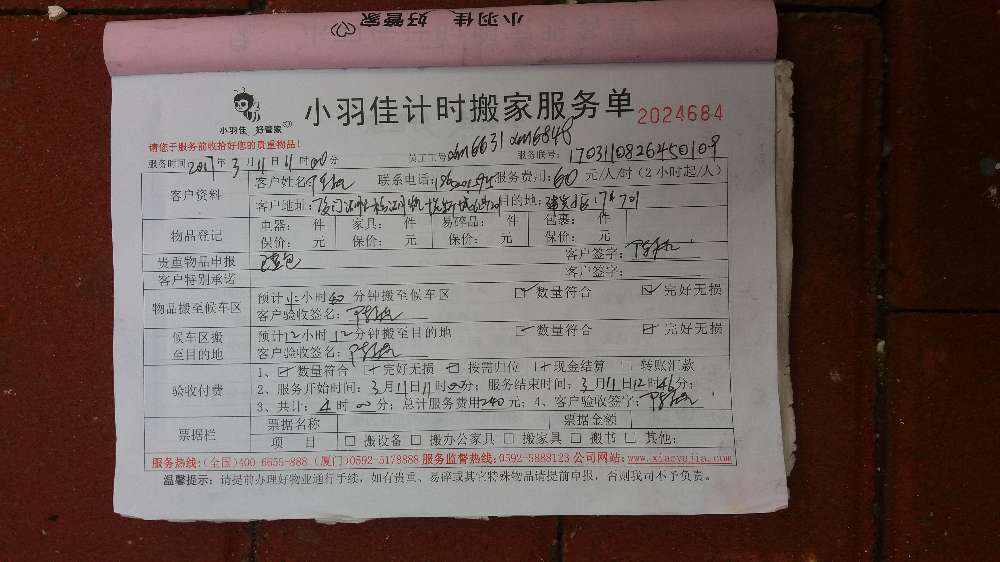 小羽佳 好管家
小羽佳 好管家
小羽佳计时搬家服务单 2024684
请您于服务前收拾好您的贵重物品!
服务时间 2017年3月11日11时00分 员工工号 xm6631 xm6848 服务联号: 1703110826450109
客户资料 客户姓名: 联系电话: 服务费用: 60 元/人/时 (2小时起/人)
客户地址: 目的地:
物品登记 电器: 件 家具: 件 易碎品: 件 包裹: 件
保价: 元 保价: 元 保价: 元 保价: 元
贵重物品申报 客户签字:
客户特别承诺 客户签字:
物品搬至候车区 预计 小时 分钟搬至候车区 数量符合 完好无损
客户验收签名:
候车区搬至目的地 预计12小时12分钟搬至目的地 数量符合 完好无损
客户验收签名:
验收付费 1、 数量符合 完好无损 按需归位 现金结算 转账汇款
2、服务开始时间: 3月11日11时00分; 服务结束时间: 3月11日12时46分;
3、共计: 4时00分; 总计服务费用240元; 4、客户验收签字:
票据栏 票据名称 票据金额
项 目 □ 搬设备 □ 搬办公家具 □ 搬家具 □ 搬书 □ 其他:
服务热线:(全国)400-6655-888 (厦门)0592-5178888 服务监督热线:0592-5888123 公司网站:www.xiaoyujia.com
温馨提示: 请提前办理好物业通行手续, 如有贵重、易碎或其它特殊物品请提前申报, 否则我司不予负责。